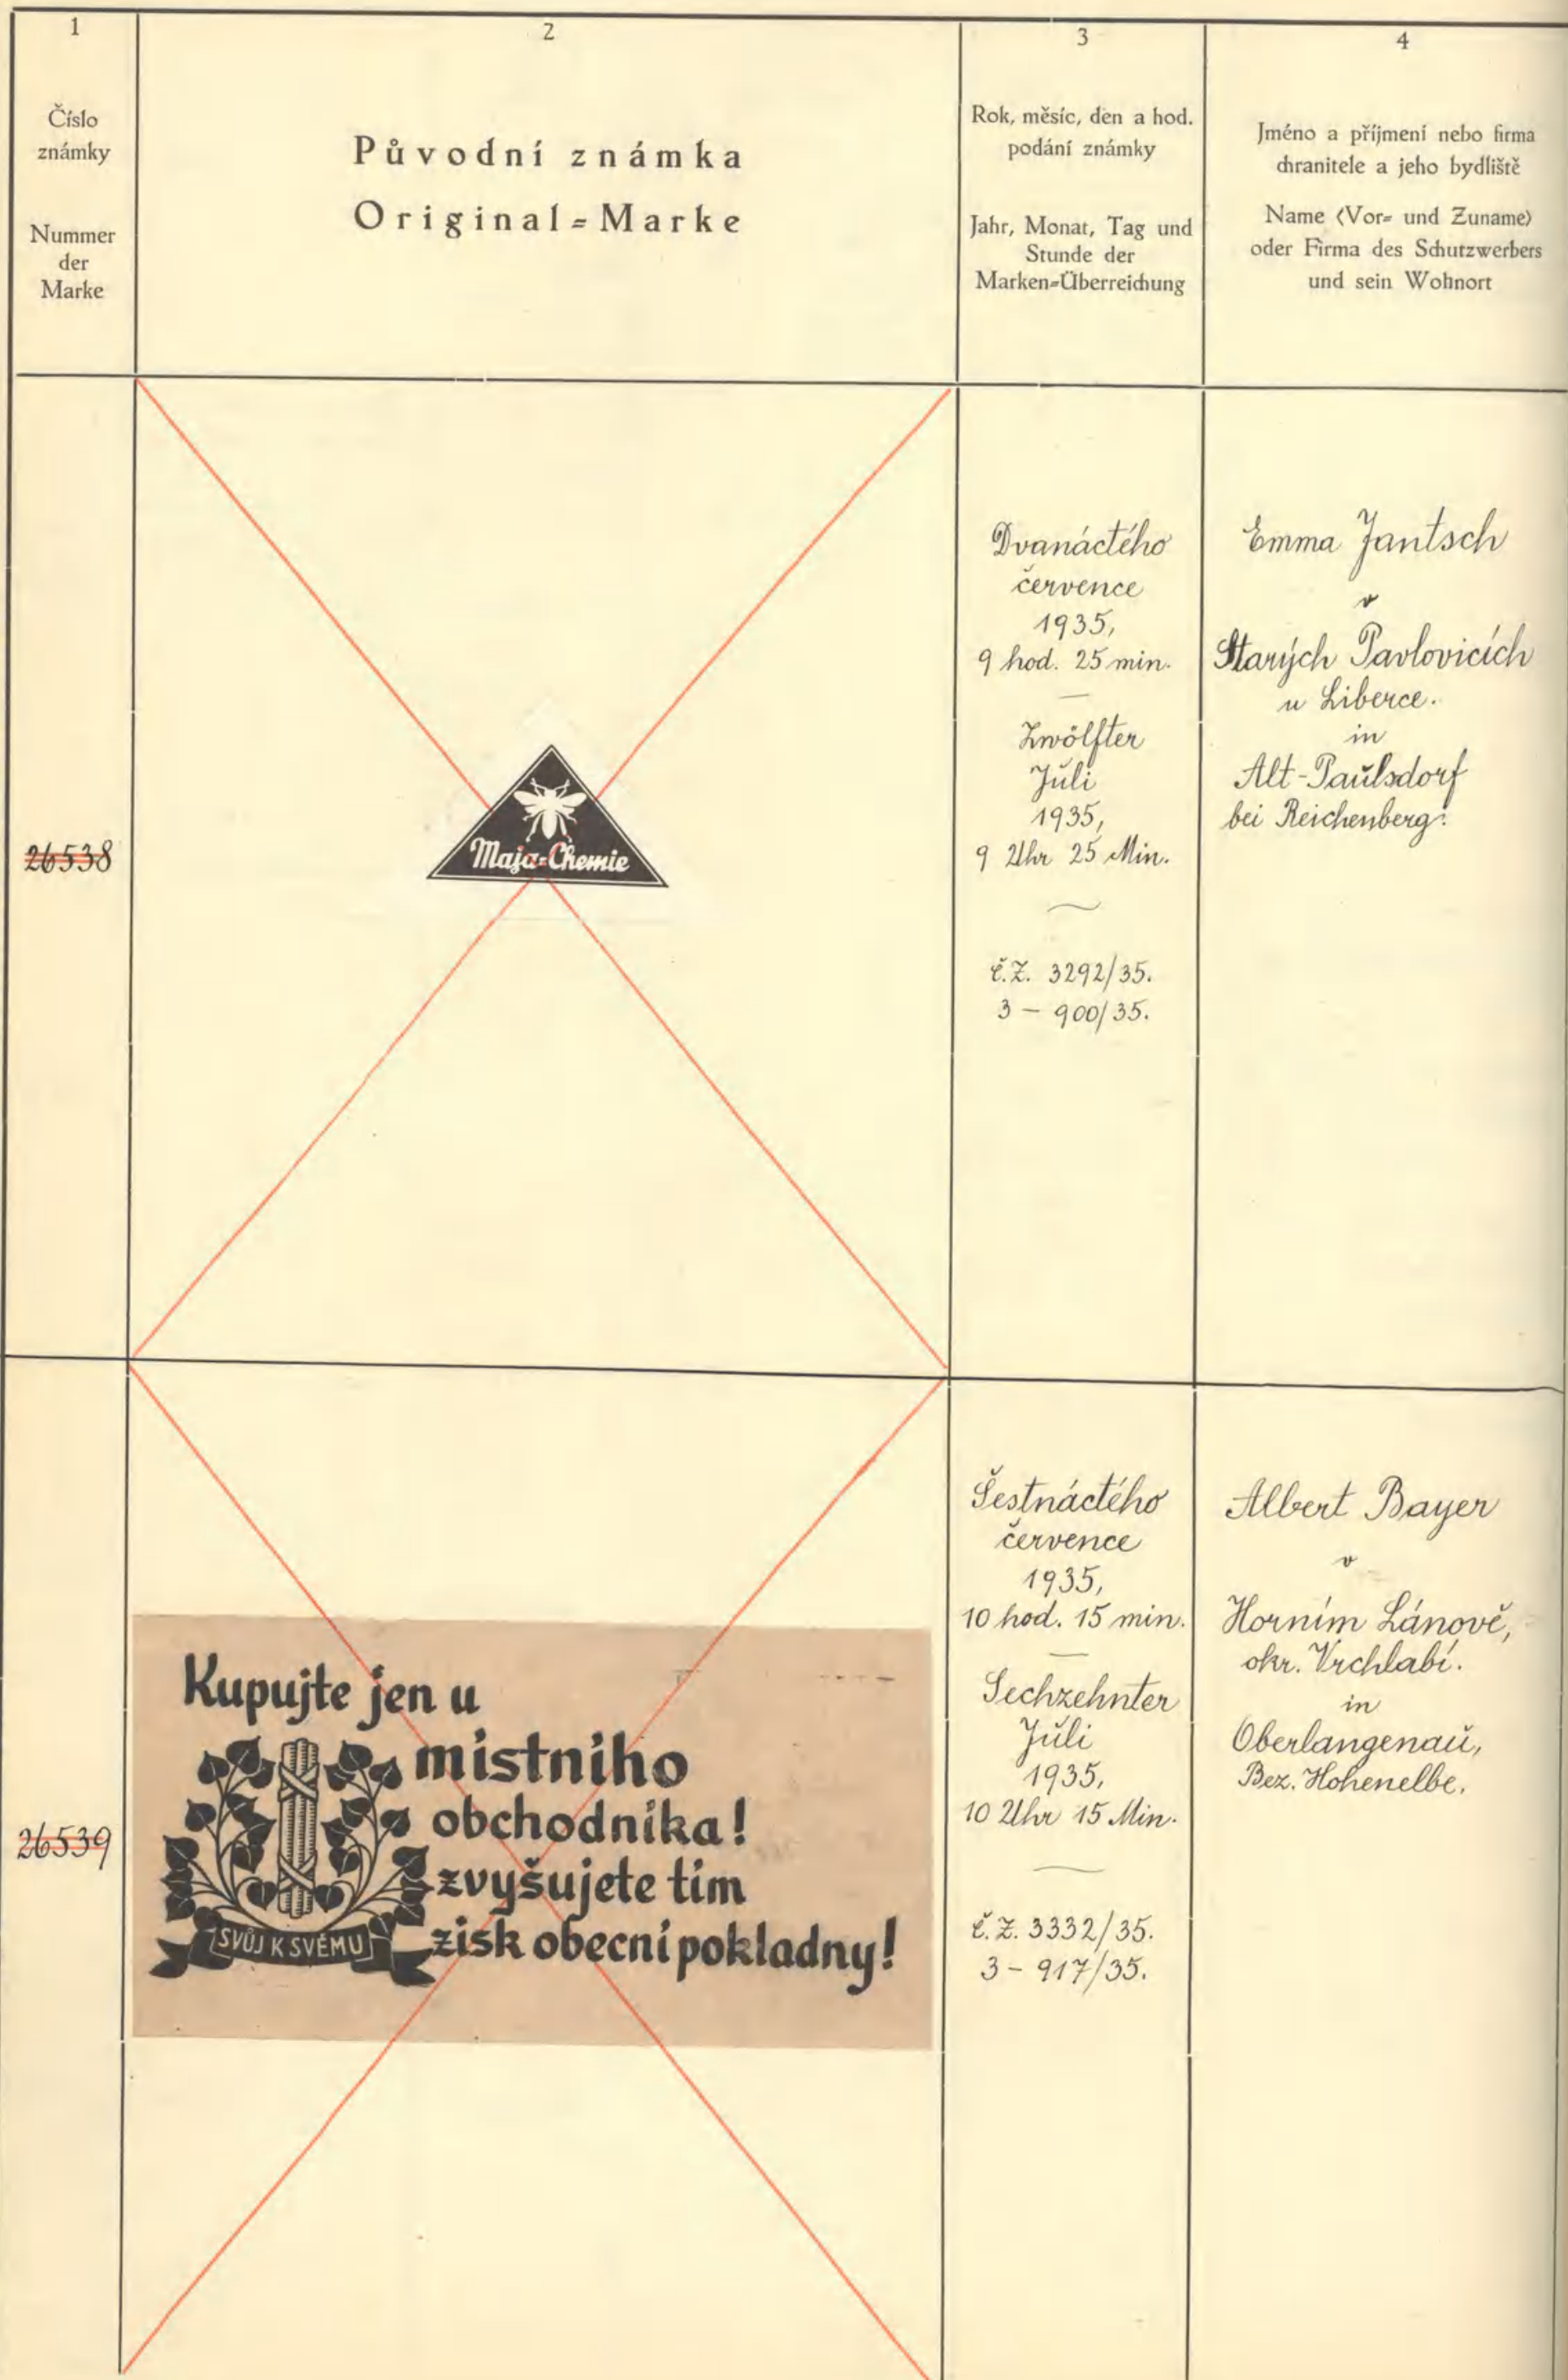 1
Číslo
známky
Nummer
der
Marke
2
Původní známka
Original=Marke
3
Rok, měsíc, den a hod.
podání známky
Jahr, Monat, Tag und
Stunde der
Marken=Überreichung
4
Jméno a příjmení nebo firma
chranitele a jeho bydliště
Name (Vor= und Zuname)
oder Firma des Schutzwerbers
und sein Wohnort
26538
Maja=Chemie
Dvanáctého
července
1935,
9 hod. 25 min.
—
Zwölfter
Juli
1935,
9 Uhr 25 Min.
č.Z. 3292/35.
3 – 900/35.
Emma Jantsch
v
Starých Pavlovicích
u Liberce.
in
Alt-Paulsdorf
bei Reichenberg.
26539
Kupujte jen u
místního
obchodníka!
zvyšujete tím
zisk obecní pokladny!
SVŮJ K SVÉMU
Šestnáctého
července
1935,
10 hod. 15 min.
—
Sechzehnter
Juli
1935,
10 Uhr 15 Min.
č.Z. 3332/35.
3 – 917/35.
Albert Bayer
v
Horním Lánově,
okr. Vrchlabí.
in
Oberlangenau,
Bez. Hohenelbe.